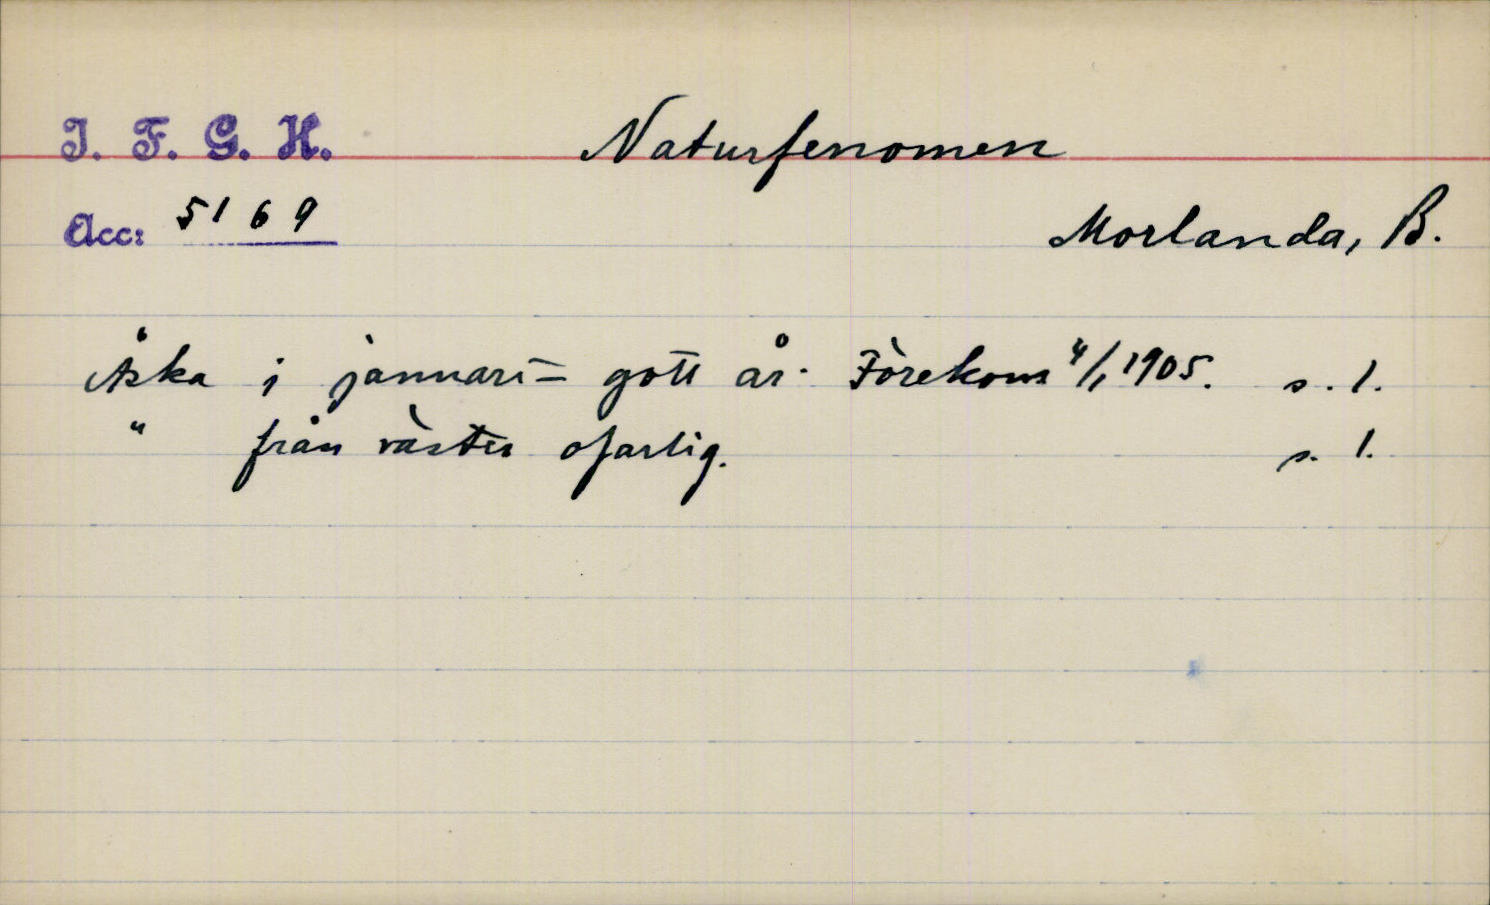 I. F. G. H.
Naturfenomen
Acc: 5169
Morlanda, B.
Åska i januari = gott år. Förekom 4/1 1905. s. 1.
" från väster ofarlig. s. 1.